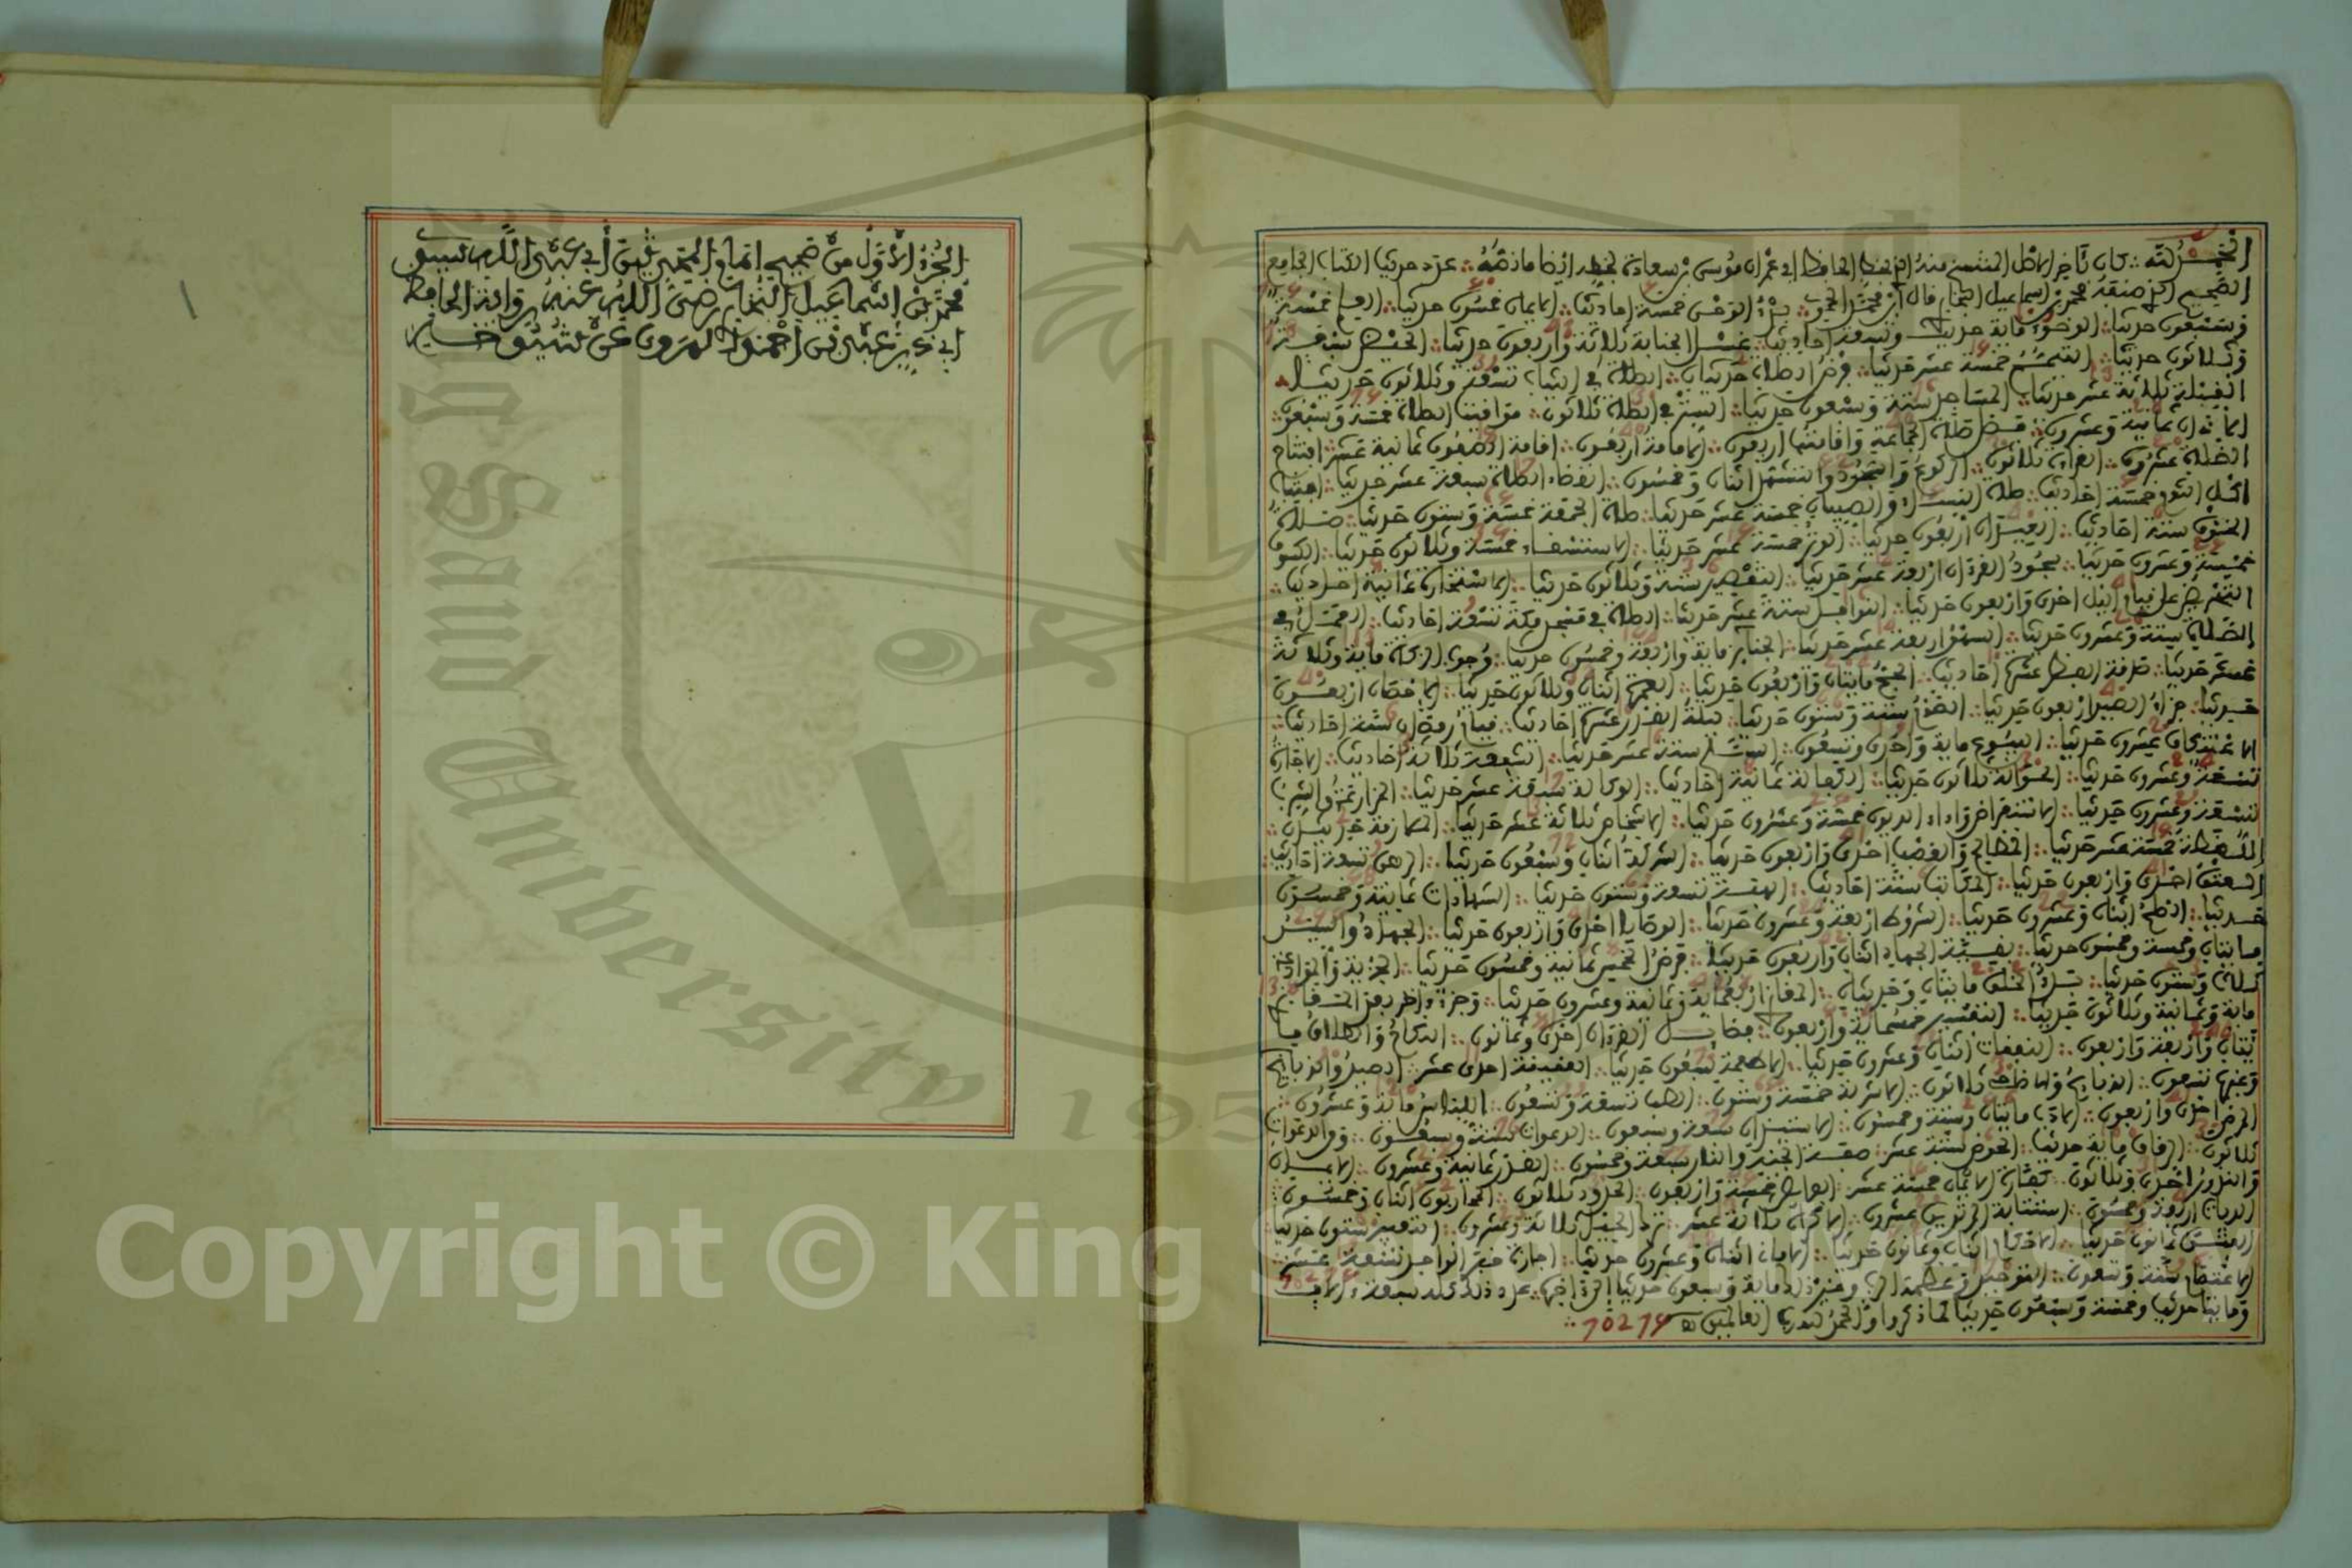 الحمد لله كان بآخر الأصل المنتسخ منه الذي بخط الحافظ أبي عمران موسى بن سعادة بخطه أيضا ما نصه عدد حديث الكتاب الجامع
الصحيح الذي صنفه محمد بن إسماعيل البخاري قال أبو محمد الحموي بدء الوحي خمسة أحاديث الإيمان خمسون حديثا العلم خمسة
وسبعون حديثا الوضوء مائة حديث وتسعة أحاديث غسل الجنابة ثلاثة وأربعون حديثا الحيض سبعة
وثلاثون حديثا التيمم خمسة عشر حديثا فرض الصلاة حديثان الصلاة في الثياب تسعة وثلاثون حديثا
القبلة ثلاثة عشر حديثا المساجد ستة وسبعون حديثا السترة في الصلاة ثلاثون مواقيت الصلاة خمسة وسبعون
الأذان ثمانية وعشرون فضل صلاة الجماعة وإقامتها أربعون الإمامة أربعون إقامة الصفوف ثمانية عشر افتتاح
الصلاة عشرون القراءة ثلاثون الركوع والسجود والتشهد اثنان وخمسون انقضاء الصلاة سبعة عشر حديثا اجتناب
أكل الثوم خمسة أحاديث صلاة النساء والصبيان خمسة عشر حديثا صلاة الجمعة خمسة وستون حديثا صلاة
الخوف ستة أحاديث العيدان أربعون حديثا الوتر خمسة عشر حديثا الاستسقاء خمسة وثلاثون حديثا الكسوف
خمسة وعشرون حديثا سجود القرآن أربعة عشر حديثا التقصير ستة وثلاثون حديثا الاستخارة ثمانية أحاديث
التحريض على قيام الليل أحد وأربعون حديثا النوافل ستة عشر حديثا الصلاة في مسجد مكة تسعة أحاديث العمل في
الصلاة ستة وعشرون حديثا السهو أربعة عشر حديثا الجنائز مائة وأربعة وخمسون حديثا وجوب الزكاة مائة وثلاثة
عشر حديثا صدقة الفطر عشرة أحاديث الحج مائتان وأربعون حديثا العمرة اثنان وثلاثون حديثا الإحصار أربعون
حديثا جزاء الصيد أربعون حديثا الصوم ستة وستون حديثا ليلة القدر عشرة أحاديث قيام رمضان ستة أحاديث
الاعتكاف عشرون حديثا البيوع مائة وأحد وتسعون السلم ستة عشر حديثا الشفعة ثلاثة أحاديث الإجارة
تسعة وعشرون حديثا الحوالة ثلاثون حديثا الكفالة ثمانية أحاديث الوكالة سبعة عشر حديثا المزارعة والشرب
تسعة وعشرون حديثا الاستقراض وأداء الديون خمسة وعشرون حديثا الأشخاص ثلاثة عشر حديثا الملازمة حديثان
اللقطة خمسة عشر حديثا المظالم والغصب أحد وأربعون حديثا الشركة اثنان وسبعون حديثا الرهن تسعة أحاديث
العتق أحد وأربعون حديثا المكاتب ستة أحاديث الهبة تسعة وستون حديثا الشهادات ثمانية وخمسون
حديثا الصلح اثنان وعشرون حديثا الشروط أربعة وعشرون حديثا الوصايا أحد وأربعون حديثا الجهاد والسير
مائتان وخمسة وخمسون حديثا بقية الجهاد اثنان وأربعون حديثا فرض الخمس ثمانية وخمسون حديثا الجزية والموادعة
ثلاث وستون حديثا بدء الخلق مائتان وحديثان المغازي أربعمائة وثمانية وعشرون حديثا وجزء آخر بعد المغازي
مائة وثمانية وثلاثون حديثا التفسير خمسمائة وأربعون فضائل القرآن أحد وثمانون النكاح والطلاق ما
ئتان وأربعة وأربعون النفقات اثنان وعشرون حديثا الأطعمة سبعون حديثا العقيقة أحد عشر الصيد والذبائح
وغيرها تسعون الذبائح والأضاحي ثلاثون الأشربة خمسة وستون الطب تسعة وسبعون اللباس مائة وعشرون
المرضى أحد وأربعون الأدب مائتان وستة وخمسون الاستئذان سبعة وسبعون الدعوات ستة وسبعون ومن الدعوات
ثلاثون الرقاق مائة حديث الحوض ستة عشر صفة الجنة والنار سبعة وخمسون القدر ثمانية وعشرون الأيمان
والنذور أحد وثلاثون كفارة الأيمان خمسة عشر الفرائض خمسة وأربعون الحدود ثلاثون المحاربون اثنان وخمسون
الديات أربعة وخمسون استتابة المرتدين عشرون الإكراه ثلاثة عشر ترك الحيل ثلاثة وعشرون التعبير ستون حديثا
الفتن ثمانون حديثا الأحكام اثنان وثمانون حديثا الأماني اثنان وعشرون حديثا إجازة خبر الواحد تسعة عشر
الاعتصام ستة وتسعون التوحيد وعظمة الرب وغير ذلك مائة وسبعون حديثا إلى آخرها عدد ذلك كله سبعة آلاف
ومائتا حديث وخمسة وسبعون حديثا كما ذكروا والحمد لله رب العالمين
الجزء الأول من صحيح إمام المحدثين أبي عبد الله سيدي
محمد بن إسماعيل البخاري رضي الله عنه رواية الحافظ
أبي ذر عبد بن أحمد الهروي عن شيوخه